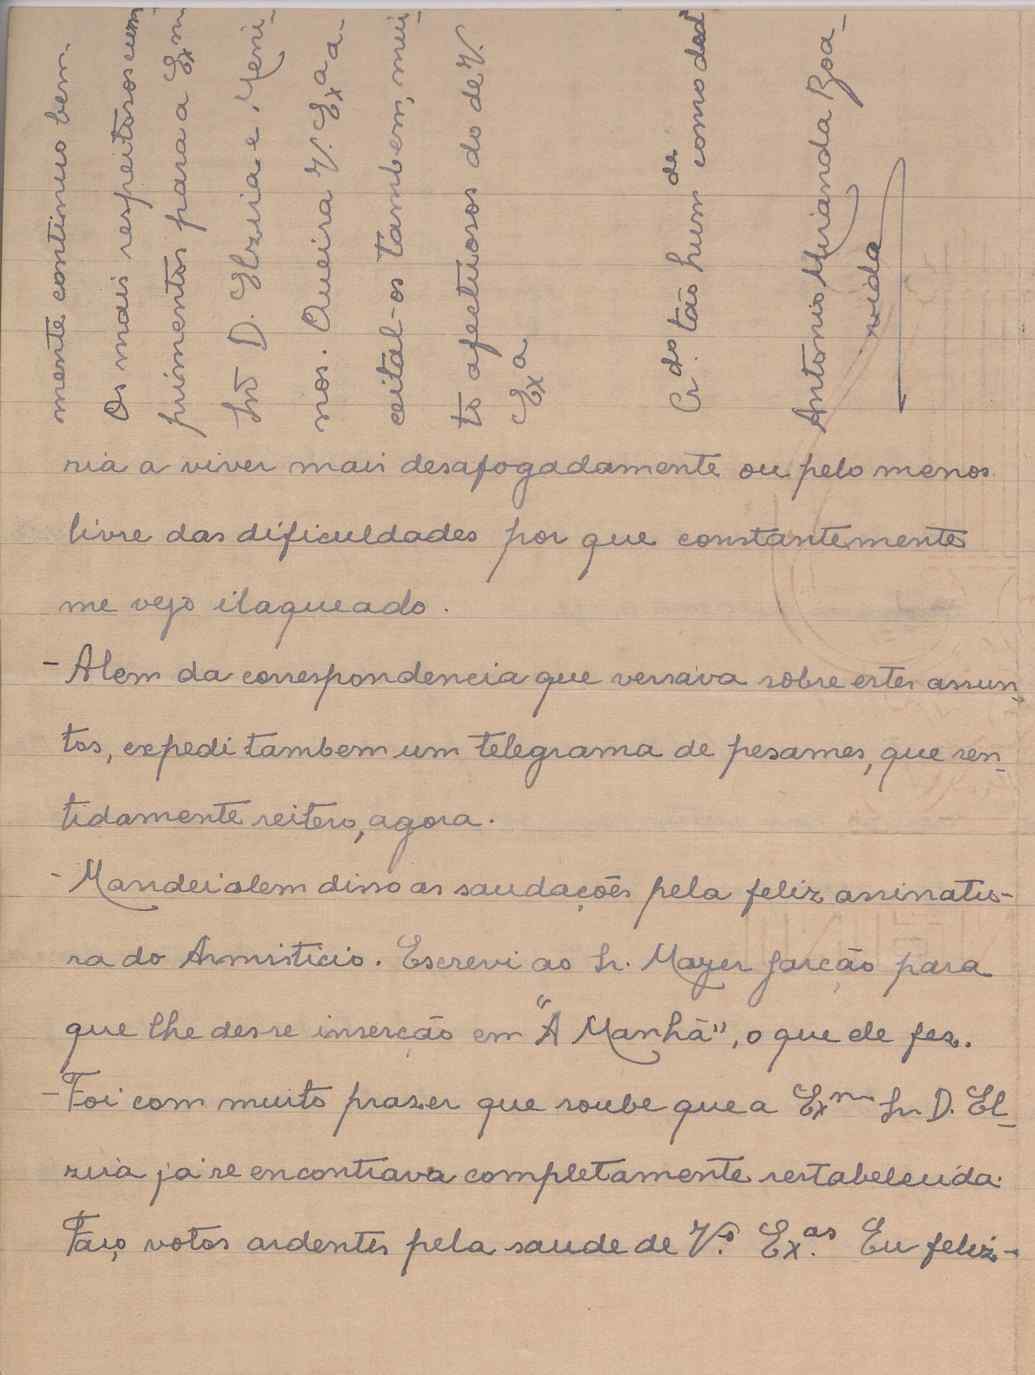 ria a viver mais desafogadamente ou pelo menos
livre das dificuldades por que constantemente
me vejo ilaqueado.
- Alem da correspondencia que versava sôbre estes assun-
tos, expedi tambem um telegrama de pesames, que sen-
tidamente reitero, agora.
- Mandei alem disso as saudações pela feliz assinatu-
ra do Armisticio. Escrevi ao Sr. Mayer Garção para
que lhe desse inserção em "A Manhã", o que ele fez.
- Foi com muito praser que soube que a Exma Sra D. El-
zira já se encontrava completamente restabelecida.
Faço votos ardentes pela saude de V.as Ex.as Eu feliz-
mente continuo bem.
Os mais respeitosos cum-
primentos para a Exm
Snr̃ D. Elzira e Meni-
nos. Queira V. Exa a-
ceital-os tambem, mui-
to afectuosos do de V.
Exa
Cr.do tão humde como ded
Antonio Miranda Boa-
vida